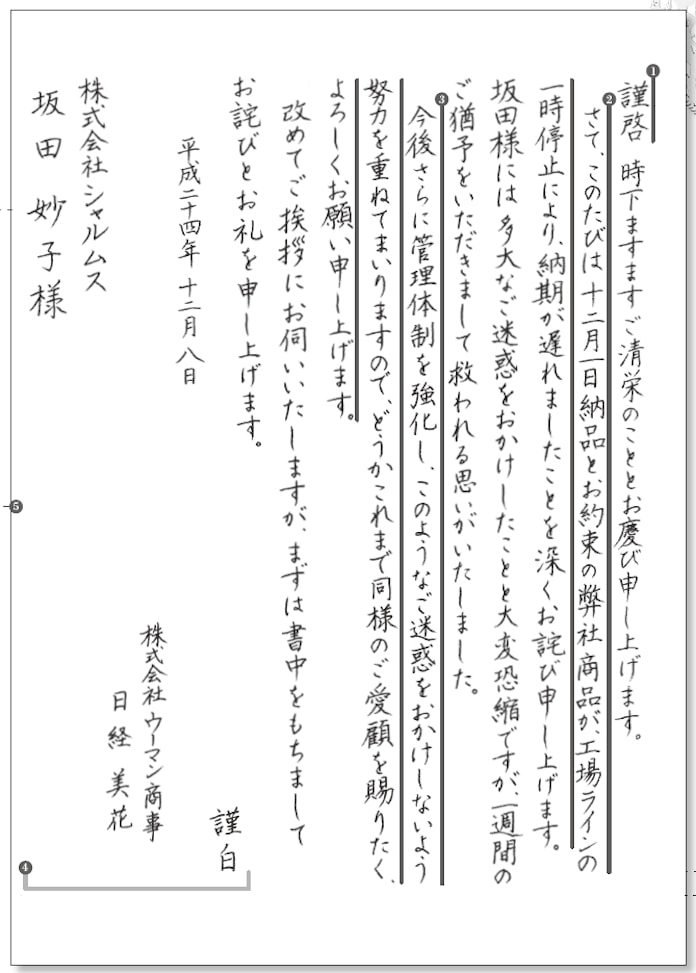 謹啓　時下ますますご清栄のこととお慶び申し上げます。
さて、このたびは十二月一日納品とお約束の弊社商品が、工場ラインの
一時停止により、納期が遅れましたことを深くお詫び申し上げます。
坂田様には多大なご迷惑をおかけしたことと大変恐縮ですが、一週間の
ご猶予をいただきまして救われる思いがいたしました。
今後さらに管理体制を強化し、このようなご迷惑をおかけしないよう
努力を重ねてまいりますので、どうかこれまで同様のご愛顧を賜りたく、
よろしくお願い申し上げます。
改めてご挨拶にお伺いいたしますが、まずは書中をもちまして
お詫びとお礼を申し上げます。
謹白
平成二十四年十二月八日
株式会社ウーマン商事
日経美花
株式会社シャルムス
坂田妙子様
1
2
3
4
5